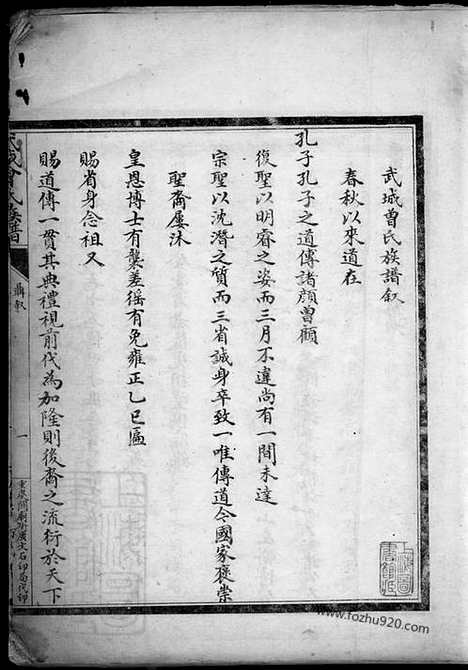 武城曾氏族譜叙
春秋以來道在
孔子孔子之道傳諸顏曾顧
復聖以明睿之姿而三月不違尚有一間未達
宗聖以沈潛之質而三省誠身卒致一唯傳道今國家褒崇
聖裔屢沐
皇恩博士有襲差徭有免雍正乙巳匾
賜省身念祖又
賜道傳一貫其典禮視前代為加隆則後裔之流衍於天下
武城曾氏族譜
叙
一
www.fozhu920.com